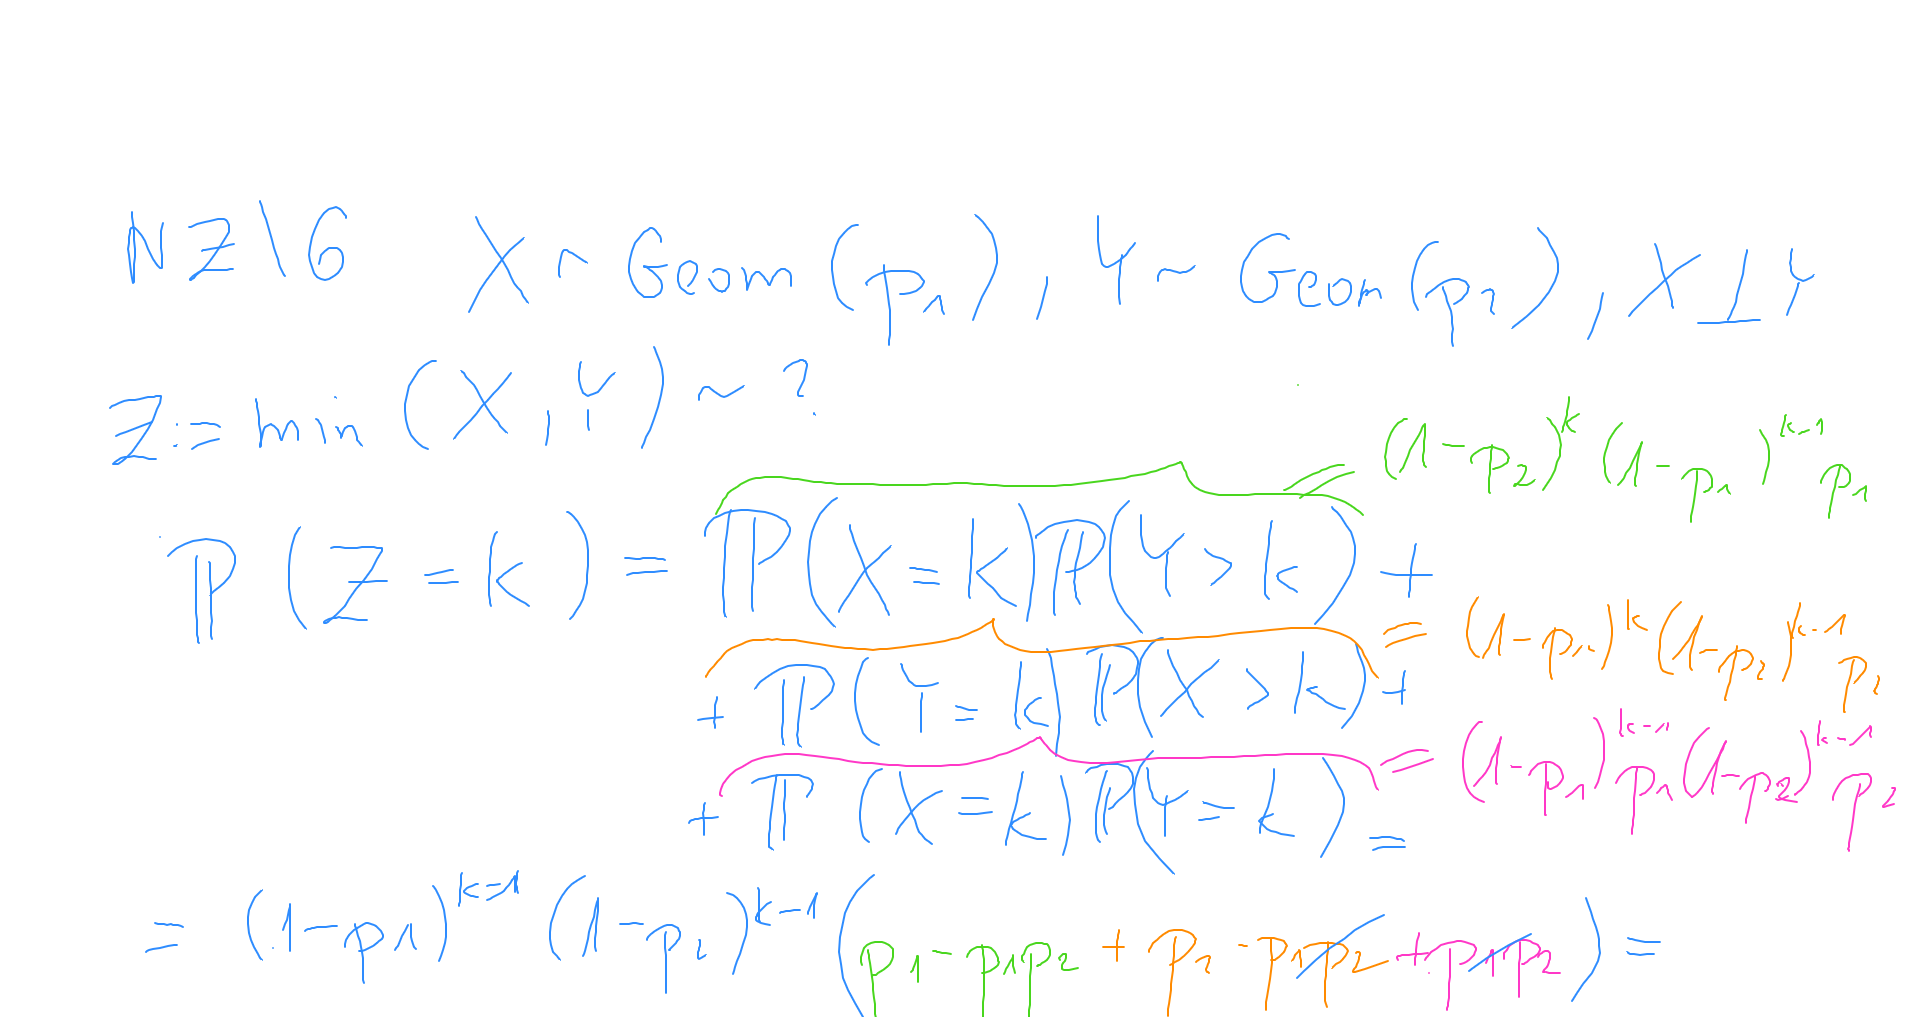 NZ\6 X ~ Geom(p₁), Y ~ Geom(p₂), X ⊥ Y
Z := min(X, Y) ~ ?
= (1-p₂)^k (1-p₁)^{k-1} p₁
ℙ(Z = k) = ℙ(X = k) ℙ(Y > k) +
= (1-p₁)^k (1-p₂)^{k-1} p₂
+ ℙ(Y = k) ℙ(X > k) +
= (1-p₁)^{k-1} p₁ (1-p₂)^{k-1} p₂
+ ℙ(X = k) ℙ(Y = k) =
= (1-p₁)^{k-1} (1-p₂)^{k-1} (p₁ - p₁p₂ + p₂ - p₁p₂ + p₁p₂) =